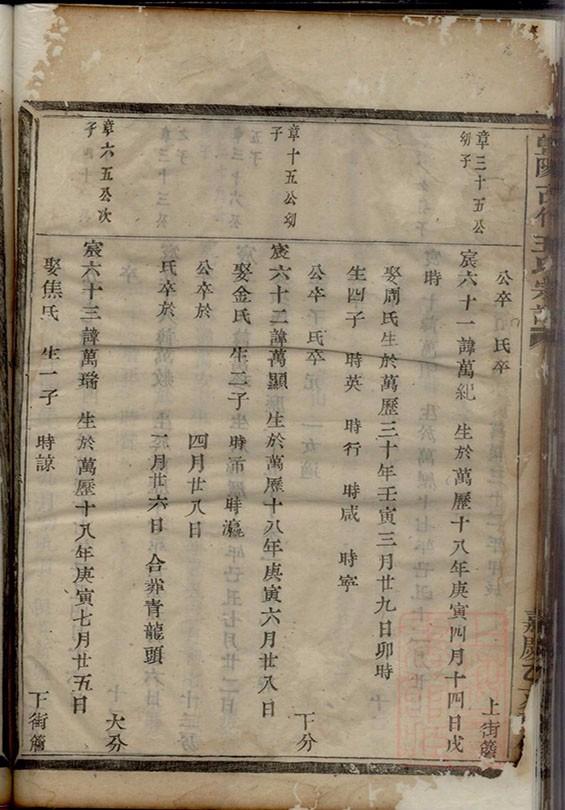 公卒 氏卒
上街簷
章三十五公幼子
宸六十一諱萬紀 生於萬歷十八年庚寅四月十四日戌時
娶周氏生於萬歷三十年壬寅三月廿九日卯時
生四子 時英 時行 時咸 時寧
公卒 氏卒
下分
章十五公幼子
宸六十二諱萬顯 生於萬歷十八年庚寅六月廿八日
娶金氏 生二子 時而 時瀛
公卒於 四月廿八日
氏卒於 二月廿六日 合葬青龍頭
大分
章六五公次子
宸六十三諱萬瑞 生於萬歷十八年庚寅七月廿五日
娶焦氏 生一子 時諒
下街簷